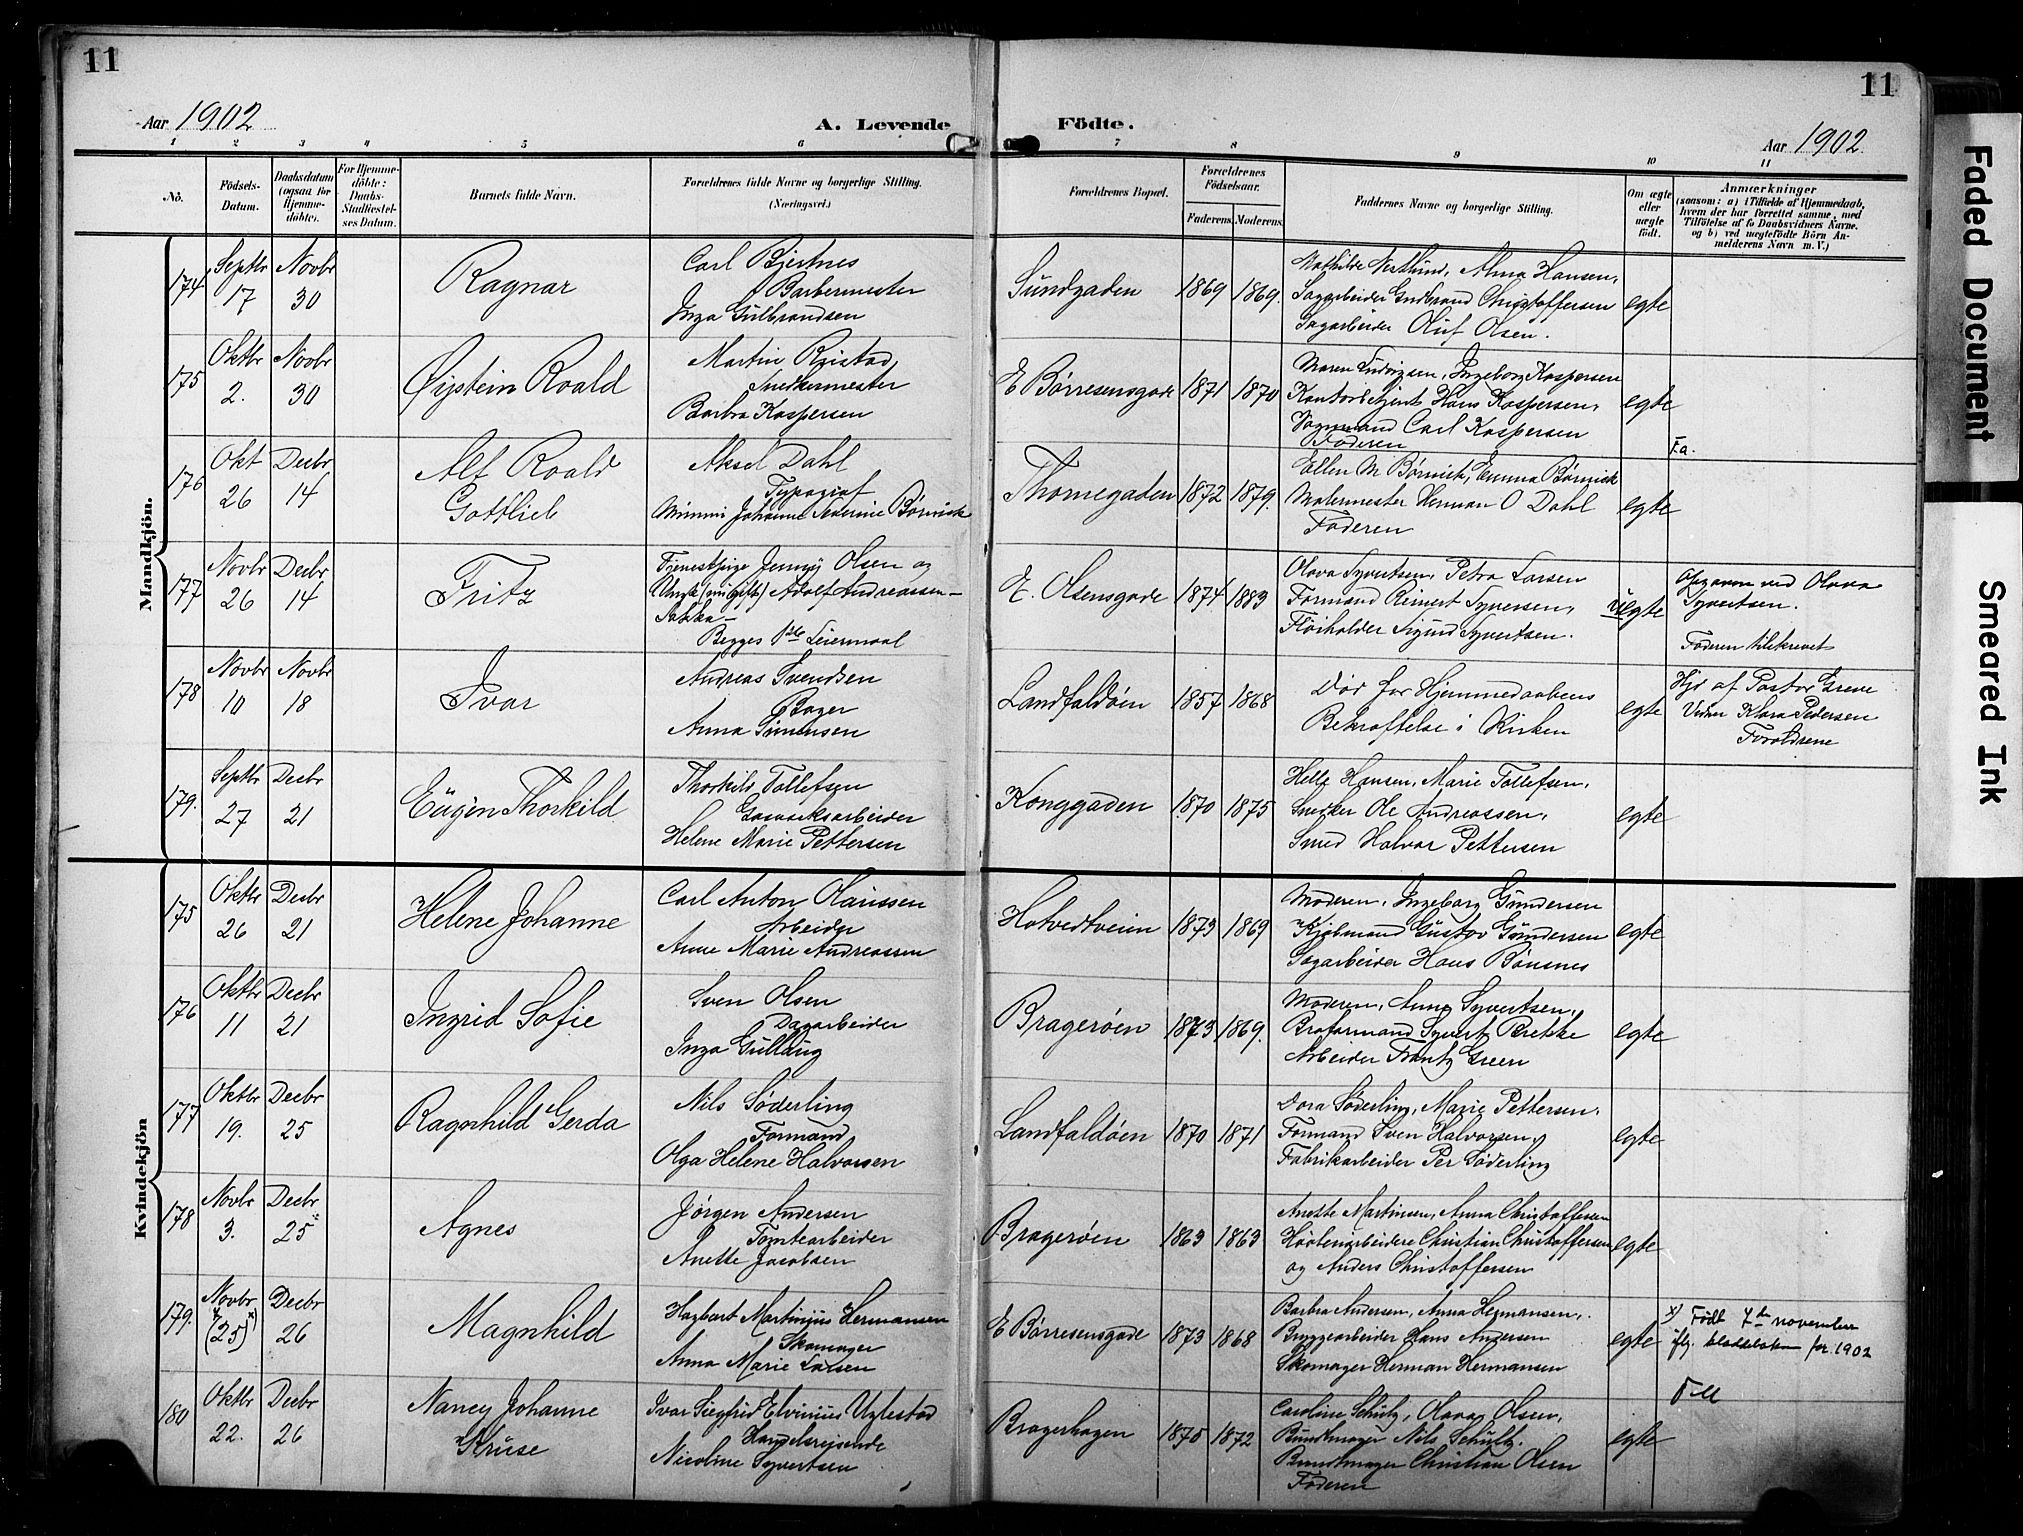 11
11
Aar 1902
A. Levende
Födte.
Aar 1902
1 2 3 4 5 6 7 8 9 10 11
No.
Födsels-
Datum.
Daabsdatum
(ogsaa for
Hjemme-
döbte).
For Hjemme-
döbte:
Daabs-
Stadfæstel-
ses Datum.
Barnets fulde Navn.
Forældrenes fulde Navne og borgerlige Stilling.
(Næringsvei.)
Forældrenes Bopæl.
Forældrenes
Födselsaar.
Faderens. Moderens.
Faddernes Navne og borgerlige Stilling.
Om ægte
eller
uægte
födt.
Anmærkninger
(saasom: a) i Tilfælde af Hjemmedaab,
hvem der har forrettet samme, med
Tilföielse af to Daabsvidners Navne,
og b) ved uægtefödte Börn An-
melderens Navn m. V.)
Mandkjön.
174
Septbr
17
Novbr
30
Ragnar
Carl Bjertnes
Barbermester
Inga Gulbrandsen
Sundgaden
1869
1869.
Mathilde Vestlund, Anna Hansen,
Sagarbeider Gudbrand Christoffersen
Sagarbeider Oluf Olsen.
egte
175
Oktbr
2.
Novbr
30
Øistein Roald
Martin Reistad
Snedkermester
Barbra Kaspersen
E Børresensgade
1871
1870
Maren Ludvigsen, Ingeborg Kaspersen
Kontorbetjent Hans Kaspersen,
Vognmand Carl Kaspersen
Faderen
egte
176
Okt
26
Decbr
14
Alf Roald
Gottlieb
Aksel Dahl
Typograf
Mimmi Johanne Severine Børnick
Thornegaden
1872
1879.
Ellen M Børnick, Emma Børnick
Malermester Herman O Dahl
Faderen
egte
F.a.
177
Novbr
26
Decbr
14
Fritz
Tjenestpige Jenny Olsen og
Ungk (ungift) Adolf Andreassen –
Begges 1ste Leiermaal
E. Olsensgade
1874
1883
Olava Syvertsen, Petra Larsen
Formand Reinert Syversen,
Fløiholder Sigurd Syvertsen.
uegte
Opgaven ved Olava
Syvertsen.
Faderen tilskrevet
178
Novbr
10
Novbr
18
Ivar
Andreas Svendsen
Bager
Anna Simensen
Landfaldøen
1857
1868
Død før Hjemmedaabens
Bekræftelse i Kirken
egte
Hjd af Pastor Greve
Vidner Klara Pedersen
Forældrene
179.
Septbr
27
Decbr
21
Eugen Thorkild
Thorkild Tollefsen
Gasverksarbeider
Helene Marie Pettersen
Konggaden
1870
1875
Helle Hansen, Marie Tollefsen,
Snedker Ole Andreassen,
Smed Halvor Pettersen
egte
Kvindekjön
175
Oktbr
26
Decbr
21
Helene Johanne
Carl Anton Olaussen
Arbeider
Anne Marie Andreassen
Hotvedtveien
1873
1869
Moderen, Ingeborg Gundersen
Kjøbmand Gustav Gundersen
Sagarbeider Hans Bønsnes
egte
176
Oktbr
11
Decbr
21
Ingrid Sofie
Sven Olsen
Dagarbeider
Inga Gullaug
Bragerøen
1873
1869.
Moderen, Anna Syvertsen,
Broformand Syvert Brekke
Arbeider Frantz Green
egte
177
Oktbr
19.
Decbr
25
Ragnhild Gerda
Nils Søderling
Formand
Olga Helene Halvorsen
Landfaldøen
1870
1871
Dora Søderling, Marie Pettersen,
Formand Sven Halvorsen,
Fabrikarbeider Per Søderling
egte
178
Novbr
3.
Decbr
25
Agnes
Jørgen Andersen
Tomtearbeider
Anette Jacobsen
Bragerøen
1863
1863
Anette Martinsen, Anna Christoffersen
Høvleriarbeidere Christian Christoffersen
og Anders Christoffersen
egte
179.
Novbr
(25) x)
Decbr
26
Magnhild
Hagbart Martinius Hermansen
Skomager
Anna Marie Larsen
E Børresensgade
1873
1868
Barbra Andersen, Anna Hermansen,
Bryggearbeider Hans Andersen
Skomager Herman Hermansen
egte
x) Født 7de november
iflg. kladdeboken for 1902
180
Oktbr
22.
Decbr
26
Nancy Johanne
Kruse
Ivar Siegfrid Elvinius Uglestad
Handelsreisende
Nicoline Syvertsen
Bragerhagen
1875
1872
Caroline Schultz, Olava Olsen,
Bundtmager Nils Schultz.
Bundtmager Christian Olsen
Faderen
egte
Faded Document
Smeared Ink